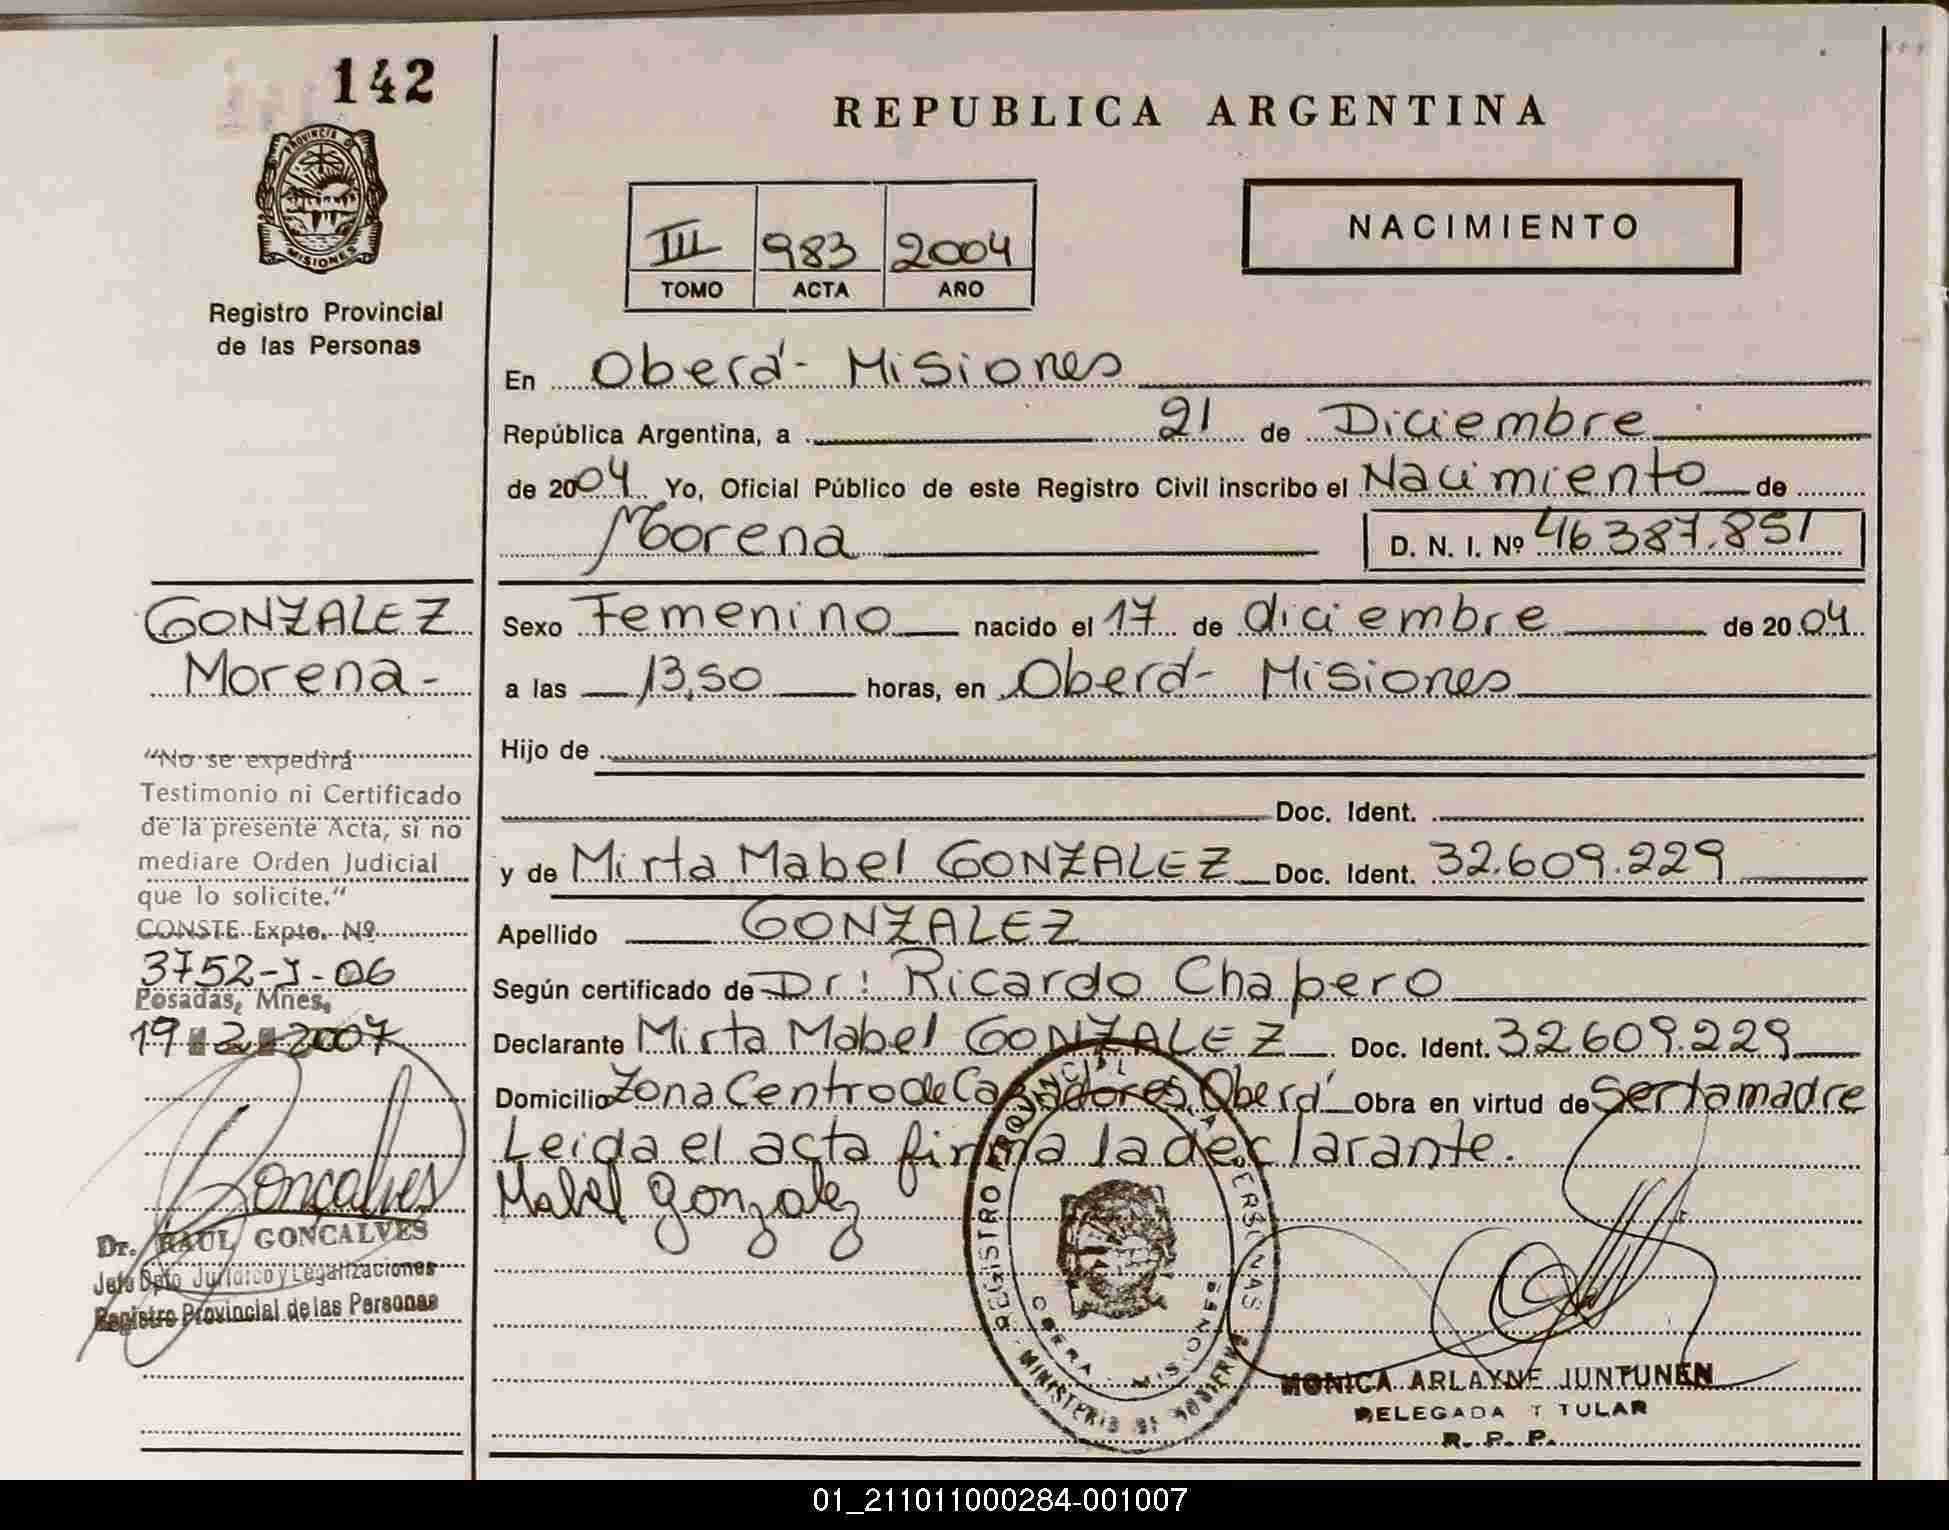 142
PROVINCIA DE
MISIONES
Registro Provincial
de las Personas
REPUBLICA ARGENTINA
III 983 2004
TOMO ACTA AÑO
NACIMIENTO
En Oberá - Misiones
República Argentina, a 21 de Diciembre
de 2004 Yo, Oficial Público de este Registro Civil inscribo el Nacimiento de
Morena D. N. I. Nº 46387.851
GONZALEZ
Morena -
"No se expedirá
Testimonio ni Certificado
de la presente Acta, si no
mediare Orden Judicial
que lo solicite."
CONSTE Expte. Nº
3752-J-06
Posadas, Mnes,
19 2 2007
Goncalves
Dr. RAUL GONCALVES
Jefe Dpto Jurídico y Legalizaciones
Registro Provincial de las Personas
Sexo Femenino nacido el 17 de diciembre de 2004
a las 13,50 horas, en Oberá - Misiones
Hijo de
Doc. Ident.
y de Mirta Mabel GONZALEZ Doc. Ident. 32.609.229
Apellido GONZALEZ
Según certificado de Dr: Ricardo Chapero
Declarante Mirta Mabel GONZALEZ Doc. Ident. 32.609.229
Domicilio Zona Centro de Cazadores, Oberá Obra en virtud de ser la madre
Leida el acta firma la declarante.
Mabel gonzalez
REGISTRO PROVINCIAL DE LAS PERSONAS
OBERA - MISIONES
MINISTERIO DE GOBIERNO
MONICA ARLAYNE JUNTUNEN
DELEGADA TITULAR
R. P. P.
01_211011000284-001007